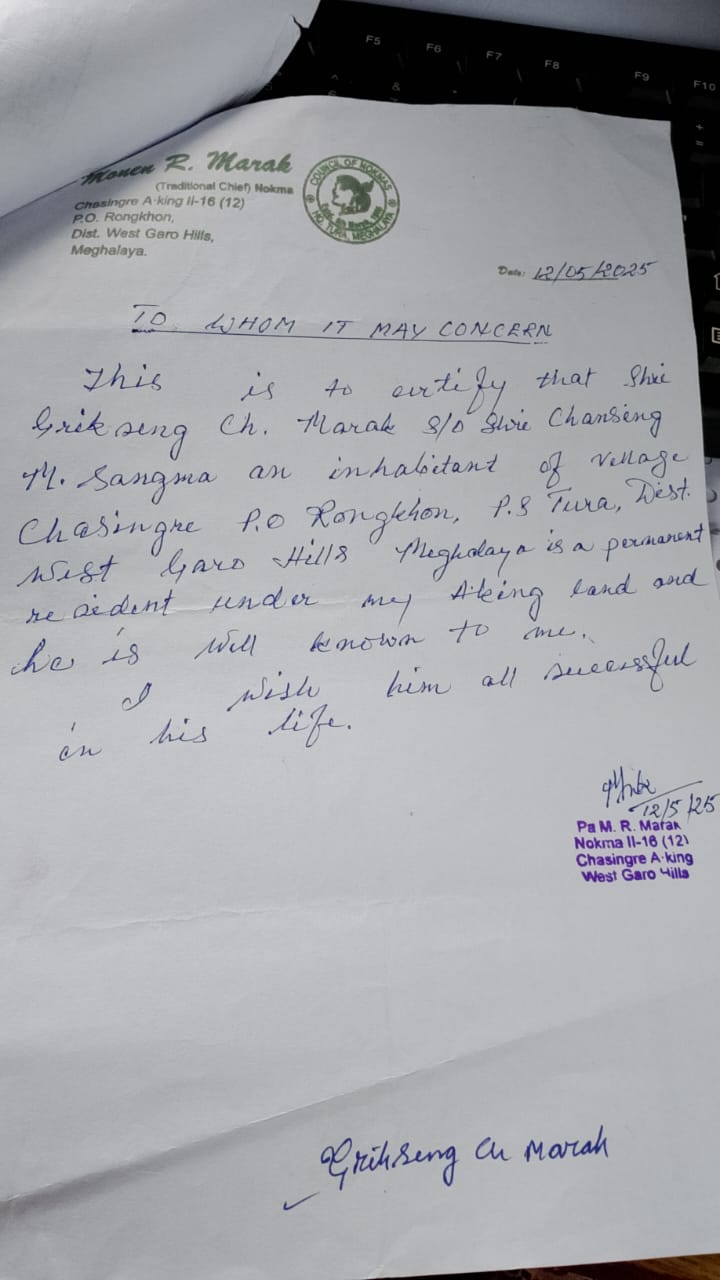 F5 F6 F7 F8 F9 F10
Monen R. Marak
(Traditional Chief) Nokma
Chasingre A·king II-16 (12)
P.O. Rongkhon,
Dist. West Garo Hills,
Meghalaya.
COUNCIL OF NOKMAS
HQ. TURA, MEGHALAYA
Date: 12/05/2025
TO WHOM IT MAY CONCERN
This is to certify that Shri
Grikseng Ch. Marak S/o Shri Chanseng
M. Sangma an inhabitant of village
Chasingre P.O Rongkhon, P.S Tura, Dist.
West Garo Hills Meghalaya is a permanent
resident under my A·king land and
he is well known to me.
I wish him all successful
in his life.
12/5/25
Pa M. R. Marak
Nokma II-16 (12)
Chasingre A·king
West Garo Hills
Grikseng Ch Marak